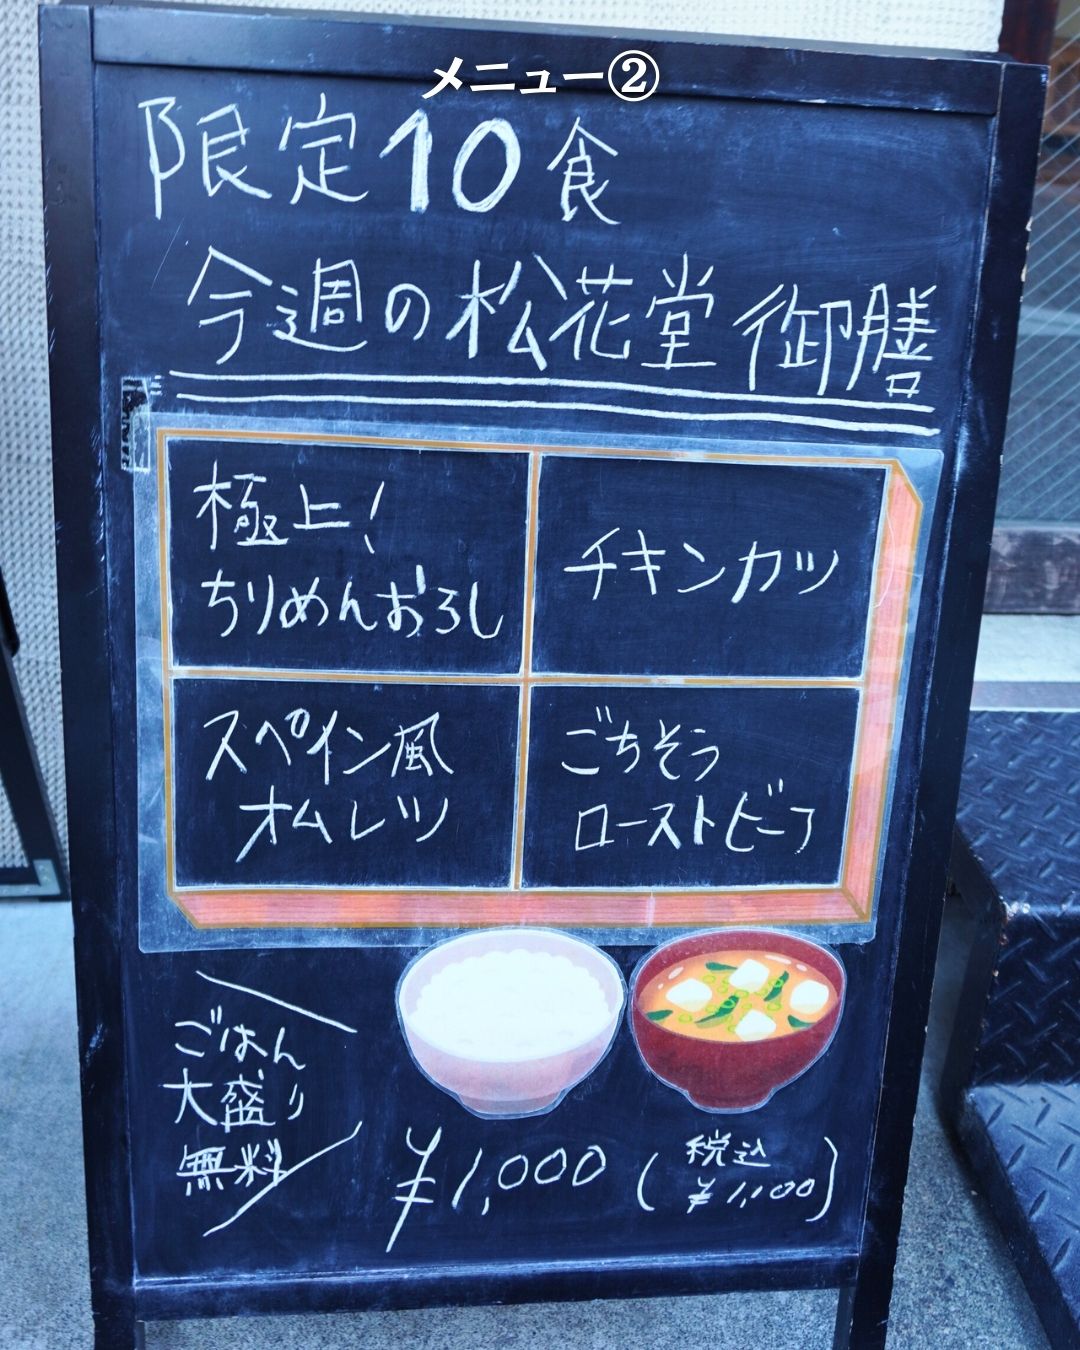 メニュー②
限定10食
今週の松花堂御膳
極上!
ちりめんおろし
チキンカツ
スペイン風
オムレツ
ごちそう
ローストビーフ
ごはん
大盛り
無料
¥1,000(税込
¥1,100)